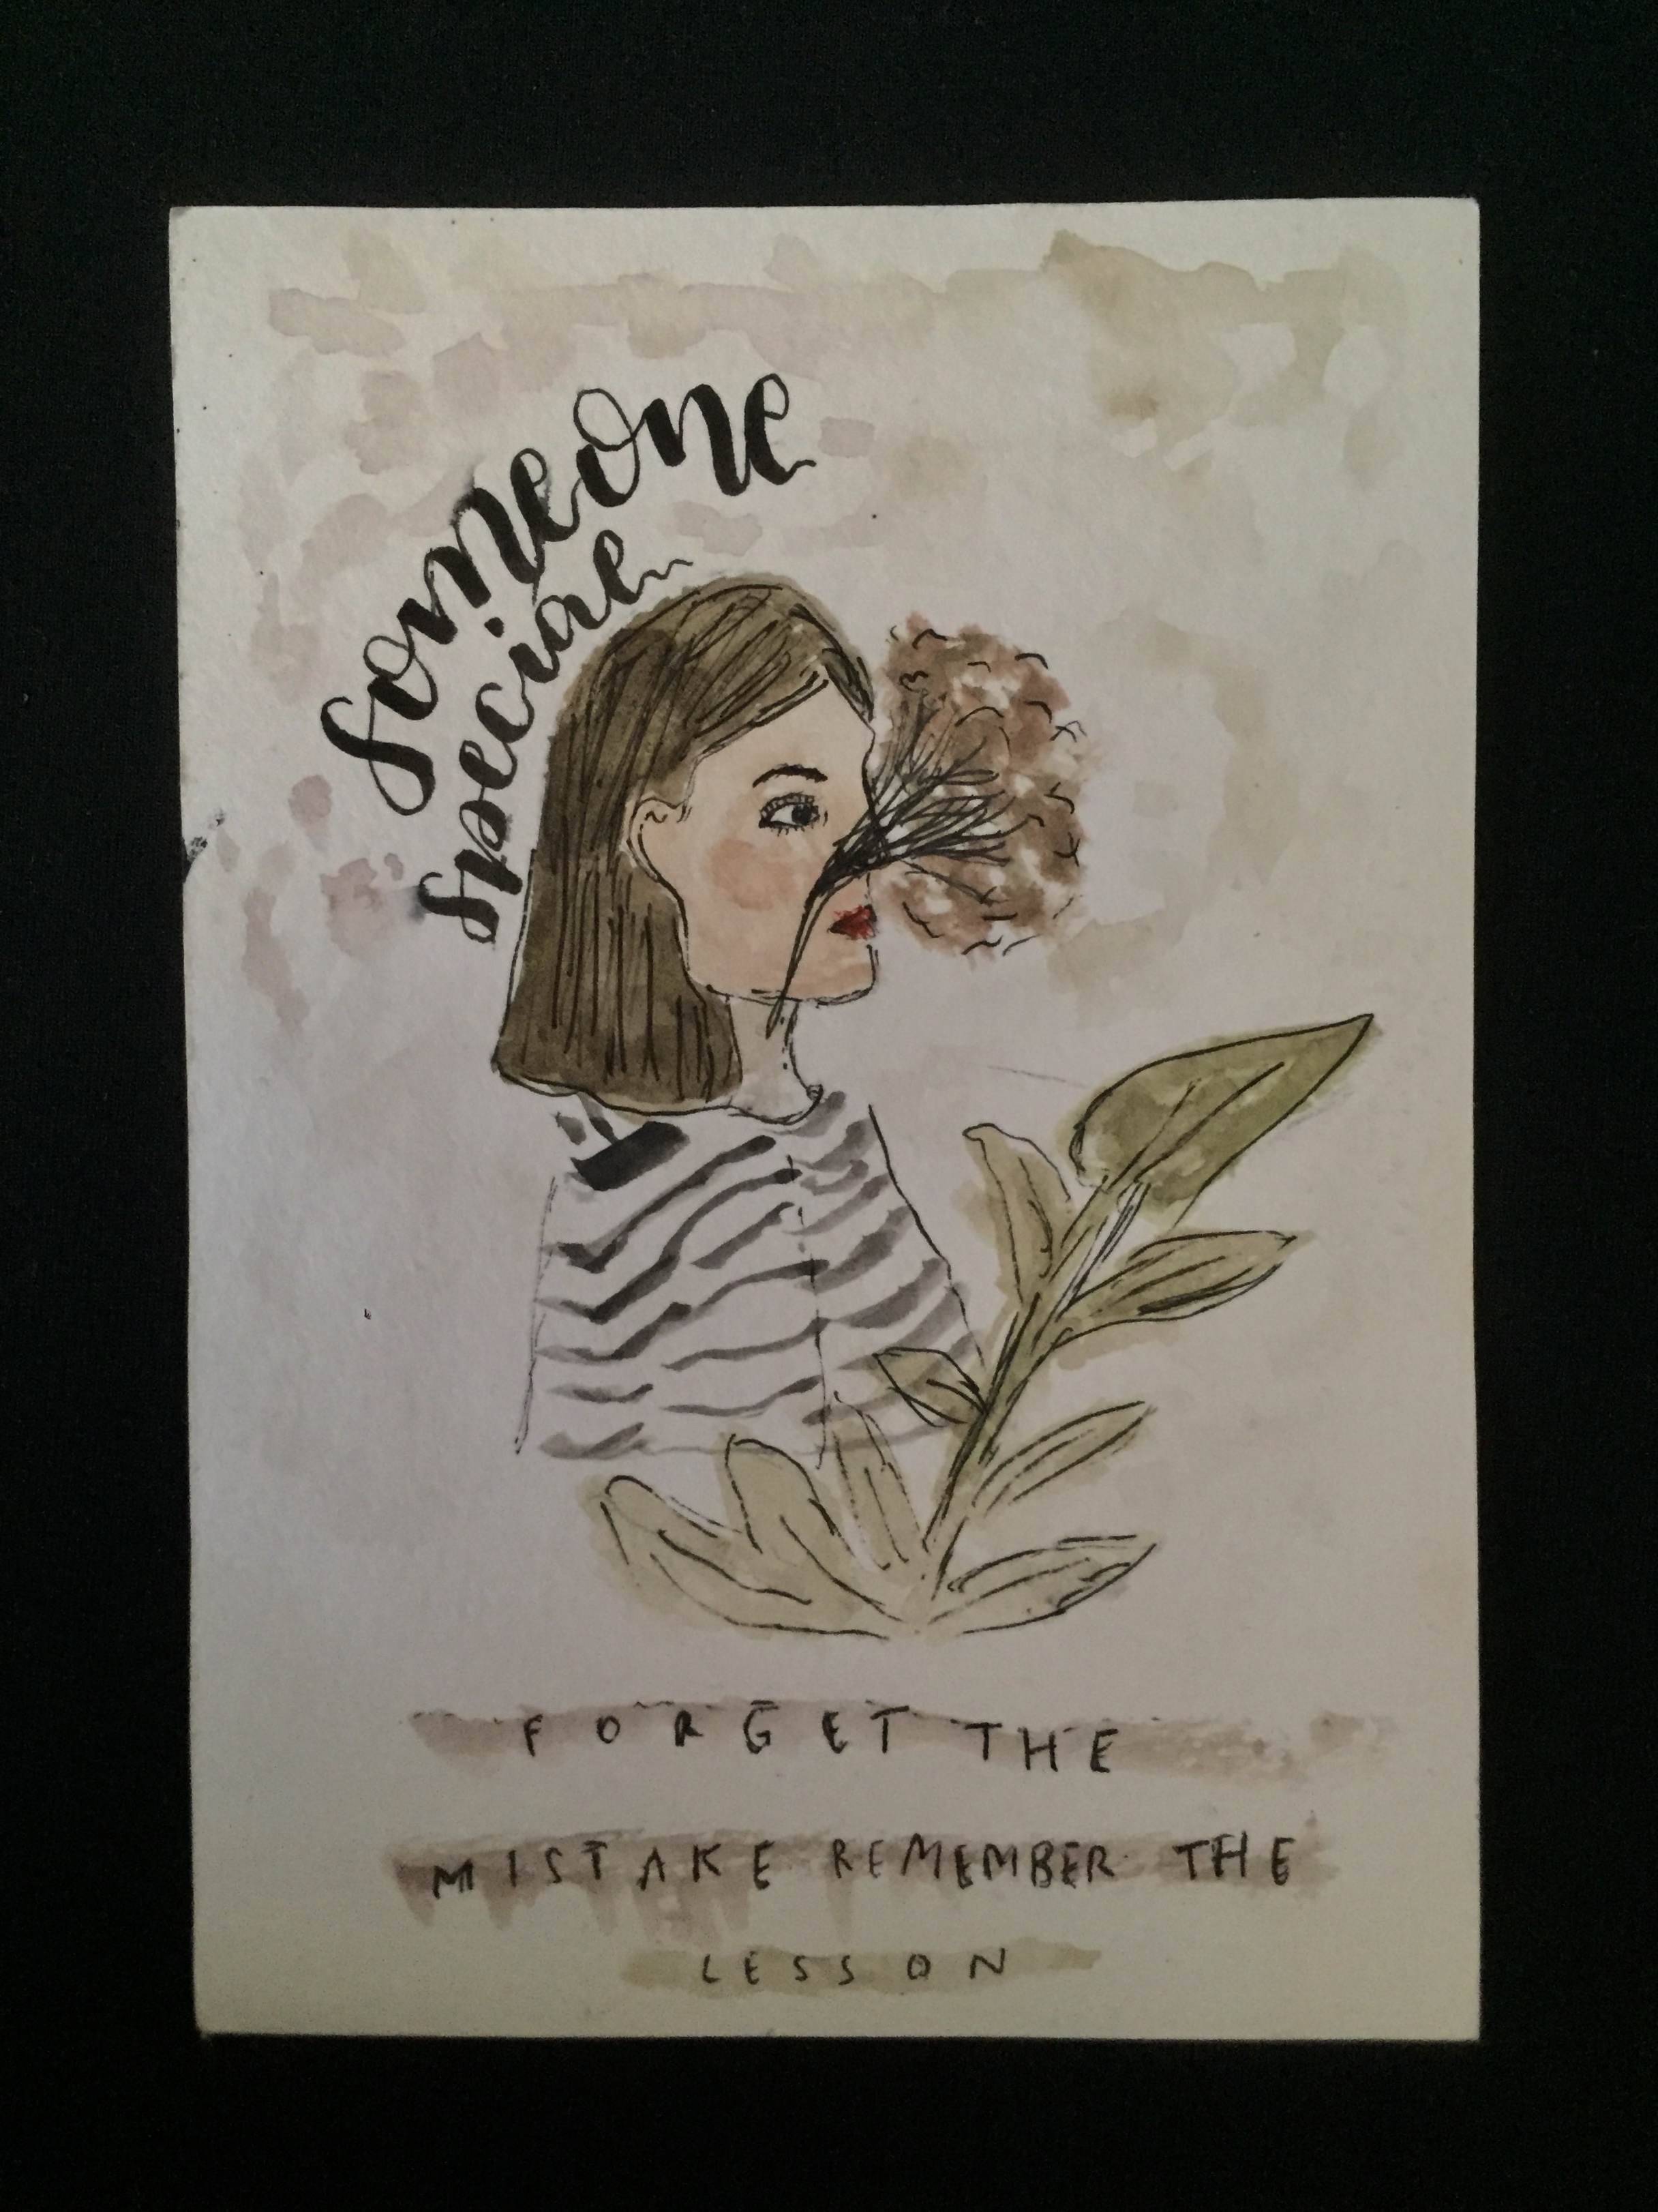 someone
special
FORGET THE
MISTAKE REMEMBER THE
LESSON